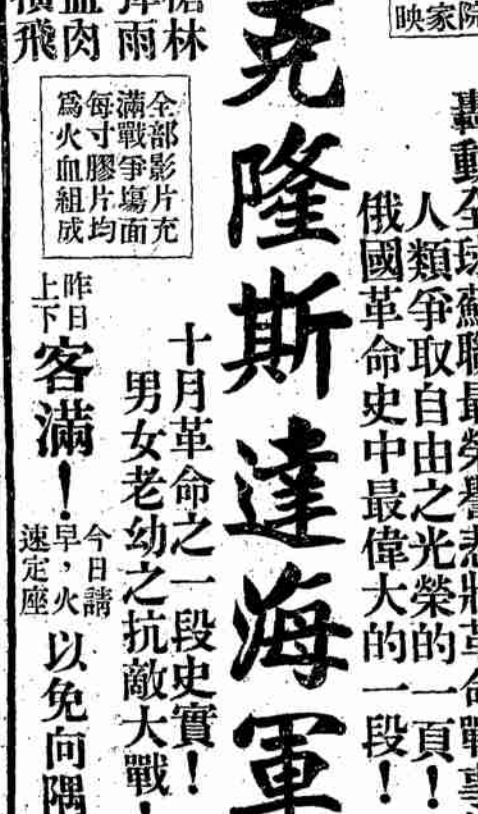 映家院
轟動全球蘇聯最榮譽悲壯革命戰事
人類爭取自由之光榮的一頁！
俄國革命史中最偉大的一段！
克隆斯達海軍
十月革命之一段史實！
男女老幼之抗敵大戰！
林
彈雨
血肉
橫飛
全部影片充
滿戰爭場面
每寸膠片均
為火血組成
昨日
上下
客滿！
今日請
早，火
速定座
以免向隅